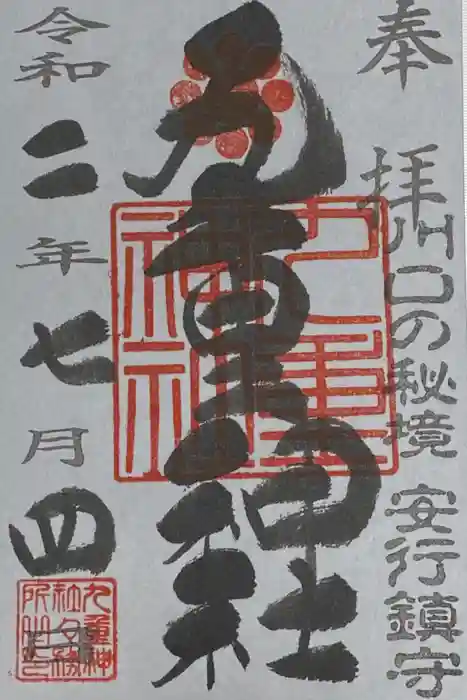 奉拝
川口の秘境 安行鎮守
九重神社
九重神社
令和二年七月四
九重神社社務所之印